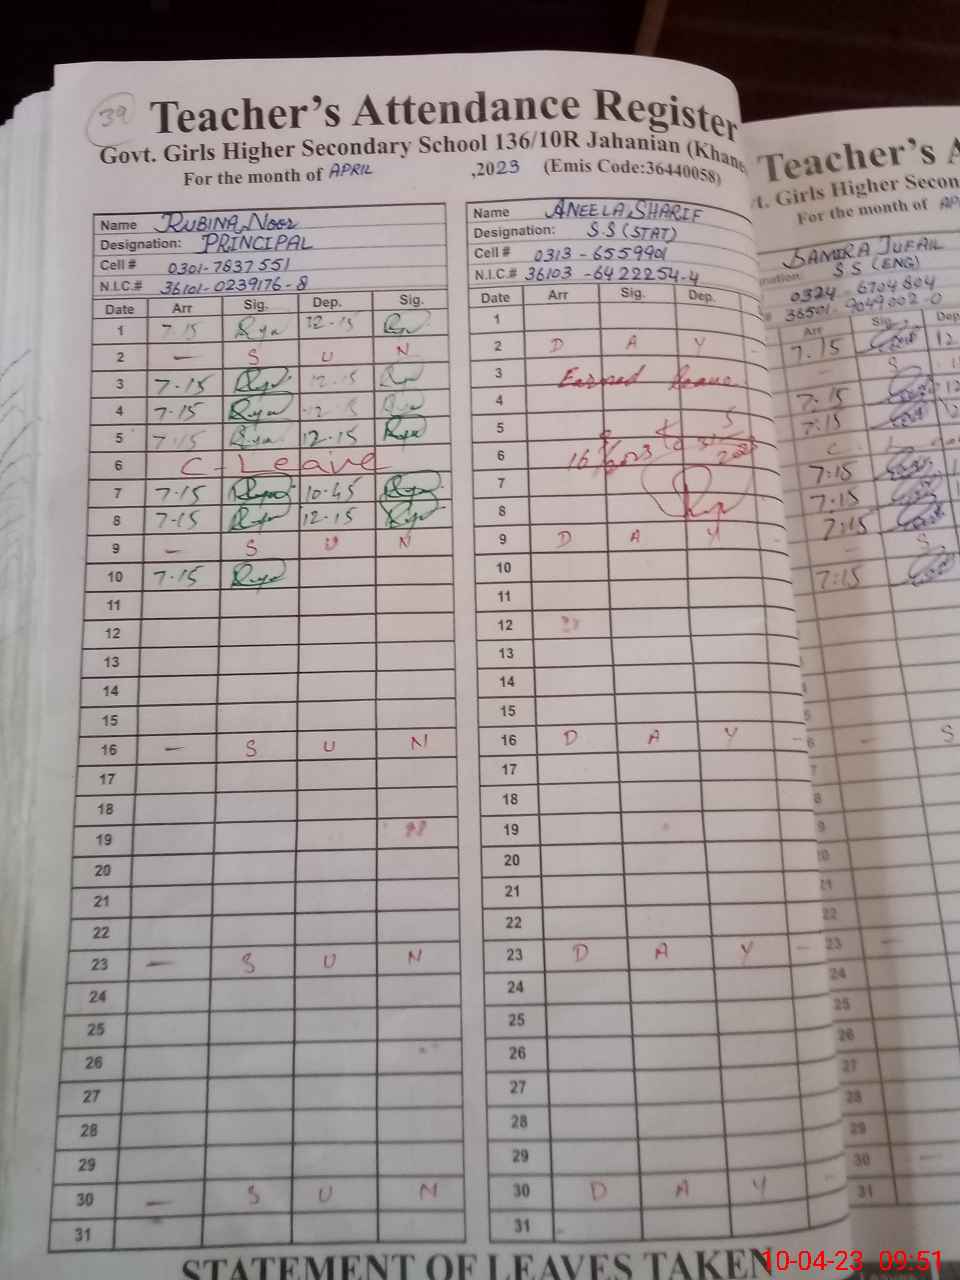 39
Teacher's Attendance Register
Govt. Girls Higher Secondary School 136/10R Jahanian (Khane
For the month of APRIL ,2023 (Emis Code:36440058)
Name RUBINA Noor
Designation: PRINCIPAL
Cell # 0301-7637551
N.I.C.# 36101-0239176-8
Date Arr Sig. Dep. Sig.
1 7.15 12-15
2 — S U N
3 7.15 12.15
4 7.15
5 7.15 12.15
6 C-Leave
7 7.15 10.45
8 7.15 12.15
9 — S U N
10 7.15
11
12
13
14
15
16 — S U N
17
18
19
20
21
22
23 — S U N
24
25
26
27
28
29
30 — S U N
31
Name ANEELA SHARIF
Designation: S.S (STAT)
Cell # 0313-6559901
N.I.C.# 36103-6422254-4
Date Arr Sig. Dep.
1
2 D A Y
3 Earned Leave
4
5
6
7
8
9 D A Y
10
11
12
13
14
15
16 D A Y
17
18
19
20
21
22
23 D A Y
24
25
26
27
28
29
30 D A Y
31
STATEMENT OF LEAVES TAKEN
Teacher's A
t. Girls Higher Secon
For the month of AP
SAMIRA TUFAIL
S S (ENG)
0324-6704804
36501-9049002-0
Arr Sig. Dep
7.15 12
— S
7.15 12
7.15
C.
7:15
7:15
7:15
— S
7:15
— S
20
21
22
23 —
24
25
26
27
28
29
30 —
31
10-04-23 09:51